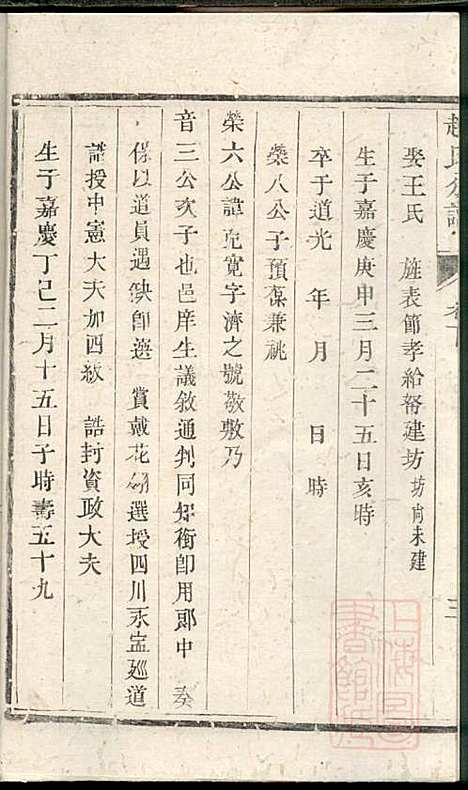 趙氏分譜 卷下 三
娶王氏 旌表節孝給帑建坊坊尚未建
生于嘉慶庚申三月二十五日亥時
卒于道光 年 月 日時
榮八公子預葆兼祧
榮六公諱克寬字濟之號敬敷乃
音三公次子也邑庠生議敘通判同知銜卽用郞中 奏
保以道員遇缺卽選 賞戴花翎選授四川永寍廵道
誥授中憲大夫加四級 誥封資政大夫
生于嘉慶丁巳二月十五日子時壽五十九
上海圖書館藏